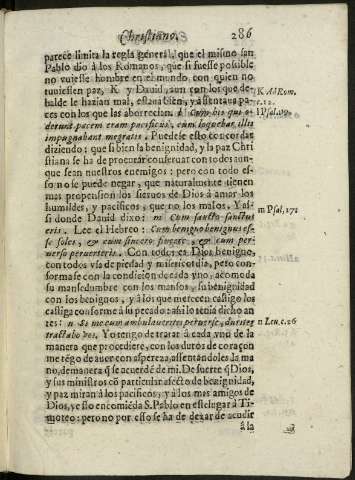 Christiano. 286
parece limita la regla general, que el mismo san
Pablo dio á los Romanos, que si fuesse possible
no vuiesse hombre en el mundo, con quien no
tuuiessen paz, K y Dauid, aun con los que de
balde le hazian mal, estaua bien, y assentaua pa-
ces con los que las aborrecian. l Cum his qui o-
derunt pacem eram pacificus, cum loquebar illis
impugnabant me gratis, Puedese esto concordar
diziendo: que si bien la benignidad, y la paz Chri
stiana se ha de procurar conseruar con todos aun-
que sean nuestros enemigos: pero con todo es-
so no se puede negar, que naturalmente tienen
mas propension los sieruos de Dios á amar los
humildes, y pacificos, que no los malos. Y as-
si donde Dauid dixo: m cum sancto sanctus
eris. Lee el Hebreo: cum benigno benignus es-
se soles, & cum sincero sincerè, & cum per-
uerso peruerteris. Con todos es Dios benigno,
con todos vsa de piedad y misericordia, pero con-
forma se con la condicion de cada vno, acomoda
su mansedumbre con los mansos, su benignidad
con los benignos, y á los que merecen castigo los
castiga conforme á su pecado: assi lo tenia dicho an
tes: n Si mecum ambulaueritis peruersè, duriter
tractabo vos. Yo tengo de tratar á cada vno de la
manera que procediere, con los duros de coraçon
me tẽgo de auer con aspereza, assentandoles la ma
no, de manera q̃ se acuerdẽ de mi. De suerte q̃ Dios,
y sus ministros cõ particular afecto de benignidad,
y paz miran á los pacificos, y á los mas amigos de
Dios, y esso encomiẽda S. Pablo en este lugar á Ti-
moteo: pero no por esso se ha de dexar de acudir
á la
K Ad Rom.
c. 12.
l Psal. 119.
m Psal, 17:
n Leu, c. 26